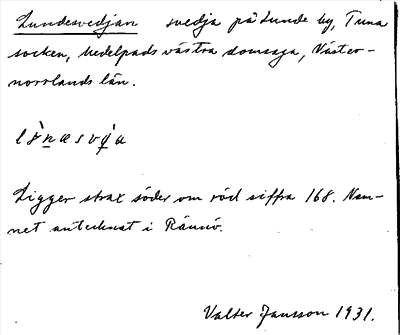 Lundesvedjan svedja på Lunde by, Tuna
socken, Medelpads västra domsaga, Väster-
norrlands län.
Ligger strax söder om röd siffra 168. Nam-
net antecknat i Rännö.
Valter Jansson 1931.